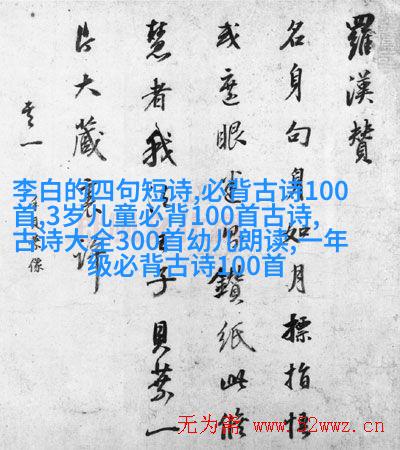 羅漢贊
名身句身如月標指悟
或遮眼迷鑽紙此脩
慧者我王子貝葉一
大藏裏
李白的四句短诗,必背古诗100
首,3岁儿童必背100首古诗,
古诗大全300首幼儿朗读,一年
级必背古诗100首
无为斋 www.52wwz.cn